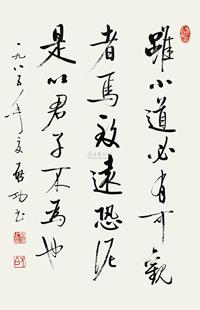 雖小道必有可觀
者焉致遠恐泥
是以君子不為也
一九八五年夏啟功書